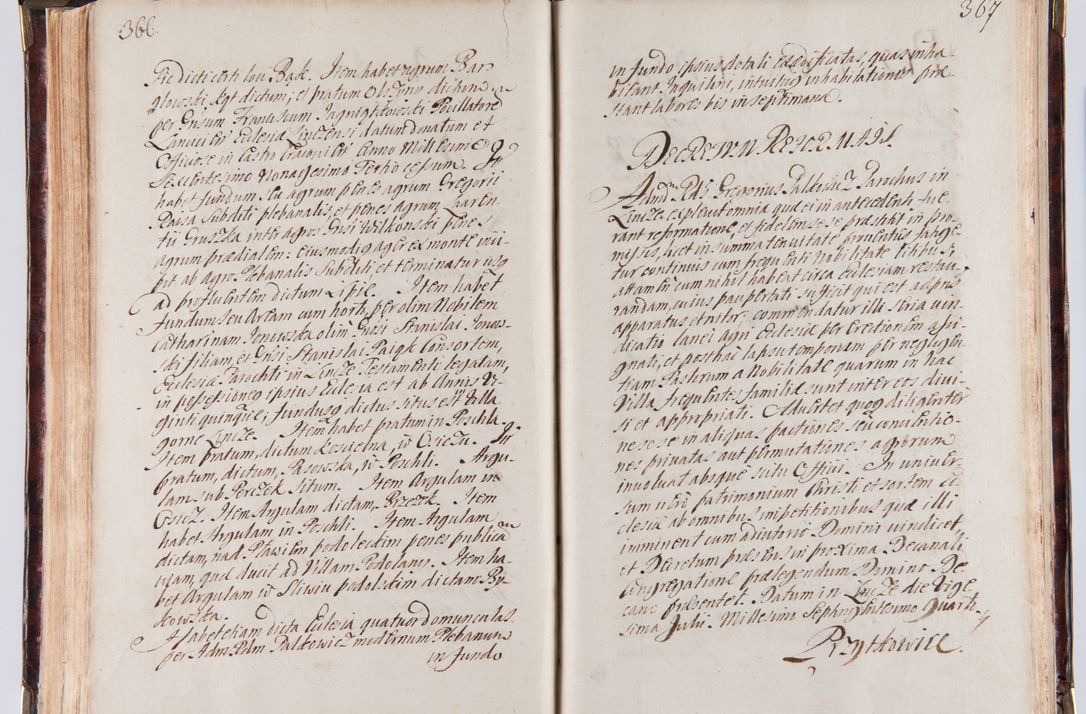 366.
Item habet agrum Bar
glowski, Kąt dictum, et pratum Olszyno dictum
per Gnsum Franciscum
Ecclesiæ Linzensi datum donatum et
Officiose in Castro Anno Millesimo
Sexcentesimo Nonagesimo Tertio cessum. Itē
habet fundum seu agrum penes agrum Gregorii
Raisa Subditi plebanalis, et penes agrum
tii Gruszka inter agros Gnsi Wilkonski penes
agrum prædialem: eiusmodi ager ex monte inci-
pit ab agro Plebanalis Subditi et terminatur usq
ad profluentem dictum Lipie. Item habet
fundum seu Aream cum horto per olim Nobilem
Catharinam olim Gnsi Stanislai Jonas-
ski filiam, et Gnsi Stanislai Paigk Consortem,
Ecclesiæ Parochli in Lincze Testamenti legatum,
in possessioneq ipsius Ecclesia est ab Annis Vi-
ginti quinque; fundusq dictus situs est Villa
gorne Lincze. Item habet pratum in Poschla
Item pratum, dictum Koscielna, w Osieku. Itē
pratum, dictum, Pasowska, w Poschli. Argu-
lam sub Perczek situm. Item Argulam in
Item Argulam dictam, Brzezek. Item
habet Argulam in Poschli. Item Argulam
dictam, nad Stawisem podolectim penes publicā
viam, quæ ducit ad Villam Podolany. Item ha-
bet Argulam w Sliwiu podolskim dictam By-
kowska.
Habet etiam dicta Ecclesia quatuor domunculas
per Adm Rdm Paltowicz modernum Plebanum
in fundo
367
in fundo ipsius dotali exædificatas, quas inha
bitant Inquilini, intuitu inhabitationis præ
stant labores bis in septimana.
DECRETUM REFORMAOIS.
Adm Rds Gregorius Paltowicz Parochus in
Lincze explevit omnia quæ ei in antecedenti fue-
rant reformatione, et fidelem se se præstitit in pro-
missis, licet in summa tenuitate proventus satige
tur continuis cum frequenti Nobilitate litibus,
attamen cum nihil habeat circa Ecclesiam restau-
randam, cuius paupertati sufficit qui est ad præs
apparatus et nitor: commendatur illi seria vin-
dicatio lanei agri Ecclesiæ per Erectionem assi-
gnati, et posthac lapsu temporum per negligen
tiam Pastorum a Nobilitate quarum in hac
Villa frequentes familiæ sunt inter eos divi-
si et appropriati. Advertet quoq diligenter
ne se se in aliquas factiones seu conventio-
nes privatas aut permutationes agrorum
involvat absque scitu Officii. In univer-
sum vero patrimonium Christi et sortem Ec
clesiæ ab omnibus impetitionibus quæ illi
imminent cum adiutorio Domini vindicet,
et Decretum præsens in proxima Decanali
Congregatione prælegendum Domino De
cano præsentet. Datum in Lincze die Vige
sima Julii. Millesimo Septingentesimo Quarto
Przytkowicē.